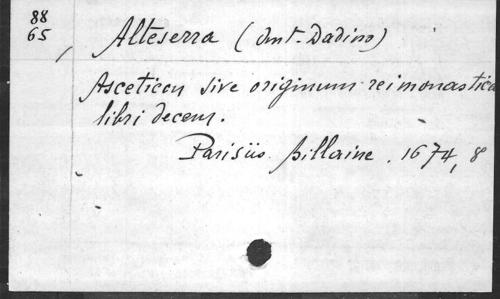 88
65
, Alteserra (Ant. Dadino)
Asceticon sive originum rei monastica
libri decem.
Parisiis Billaine. 1674, 8